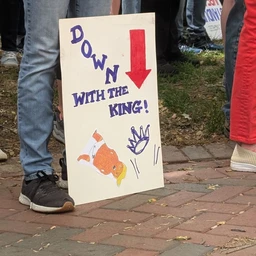 DOWN
WITH THE
KING!